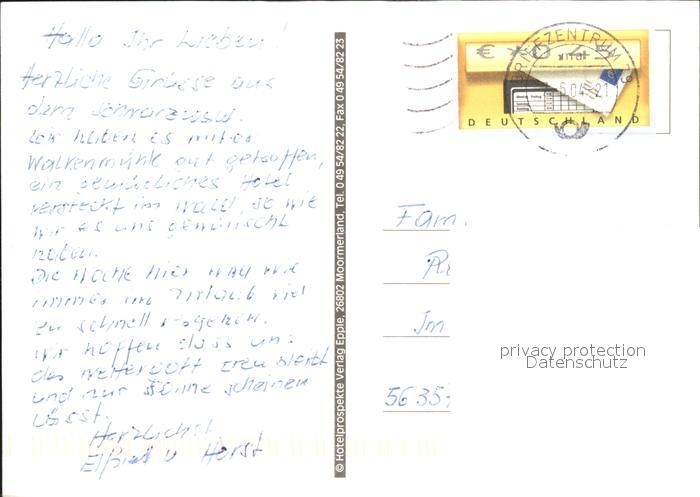 Hallo Ihr Lieben!
Herzliche Grüsse aus
dem Schwarzwald.
Wir haben es mit der
Walkenmühle gut getroffen,
ein gemütliches Hotel
versteckt im Wald, so wie
wir es uns gewünscht
haben.
Die Woche hier war wie
immer im Urlaub viel
zu schnell
Wir hoffen dass uns
das Wettergott treu bleibt
und nur Sonne scheinen
lässt.
Herzlichst
u Horst
© Hotelprospekte Verlag Epple, 26802 Moormerland, Tel. 0 49 54/82 22, Fax 0 49 54/82 23
DEUTSCHLAND
Fam.
Im
5635
privacy protection
Datenschutz